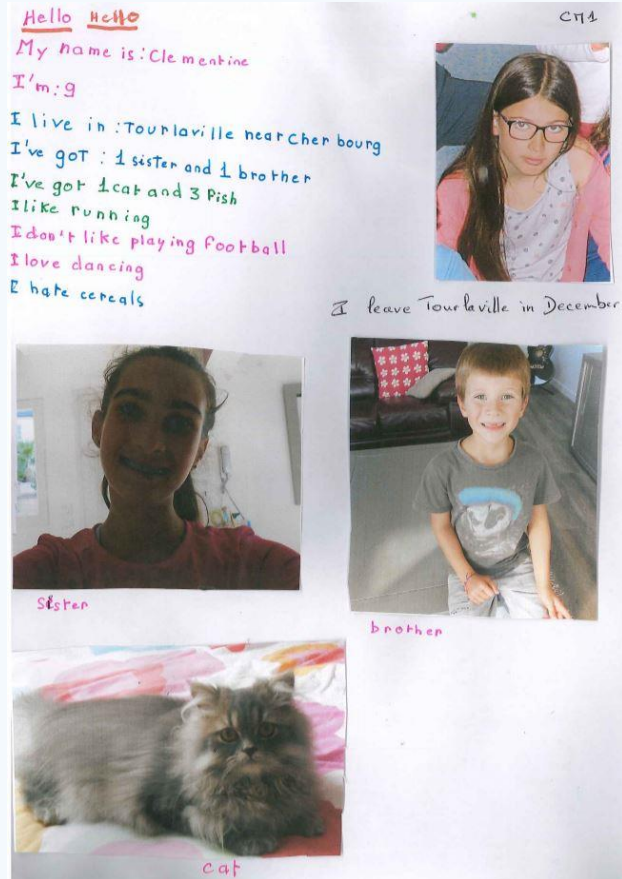 Hello Hello
CM1
My name is : Clementine
I'm : 9
I live in : Tourlaville near Cherbourg
I've got : 1 sister and 1 brother
I've got 1 cat and 3 fish
I like running
I don't like playing football
I love dancing
I hate cereals
I leave Tourlaville in December
sister
brother
cat